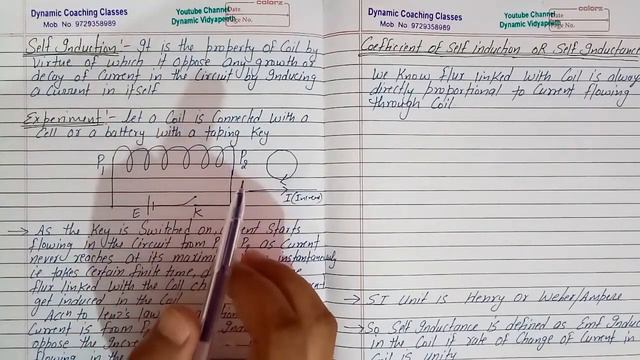 Dynamic Coaching Classes
Mob No 9729358989
Youtube Channel
Dynamic Vidyapeeth
colorz
Date
Page No.
Self Induction:- It is the property of Coil by
virtue of which it oppose any growth or
decay of Current in the Circuit by Inducing
a Current in itself
Experiment:- Let a Coil is Connected with a
Cell or a battery with a taping Key
P1 P2
E K
I (Increase)
→ As the Key is Switched on Starts
flowing in the Circuit from as Current
never reaches at its maxim instantaneously
i.e takes certain finite time,
flux linked with the Coil
get induced in the Coil
Accn to lenz's law
Current is from
oppose the Incre
flowing in the
Dynamic Coaching Classes
Mob No 9729358989
Youtube Channel
Dynamic Vidyapeeth
colorz
Date
Page No.
Coefficient of Self induction OR Self Inductance
We Know flux linked with Coil is always
directly proportional to Current flowing
through Coil
→ SI Unit is Henry or Weber/Ampere
→ So Self Inductance is defined as Emf Induced
in the Coil if rate of Change of Current in
Coil is unity